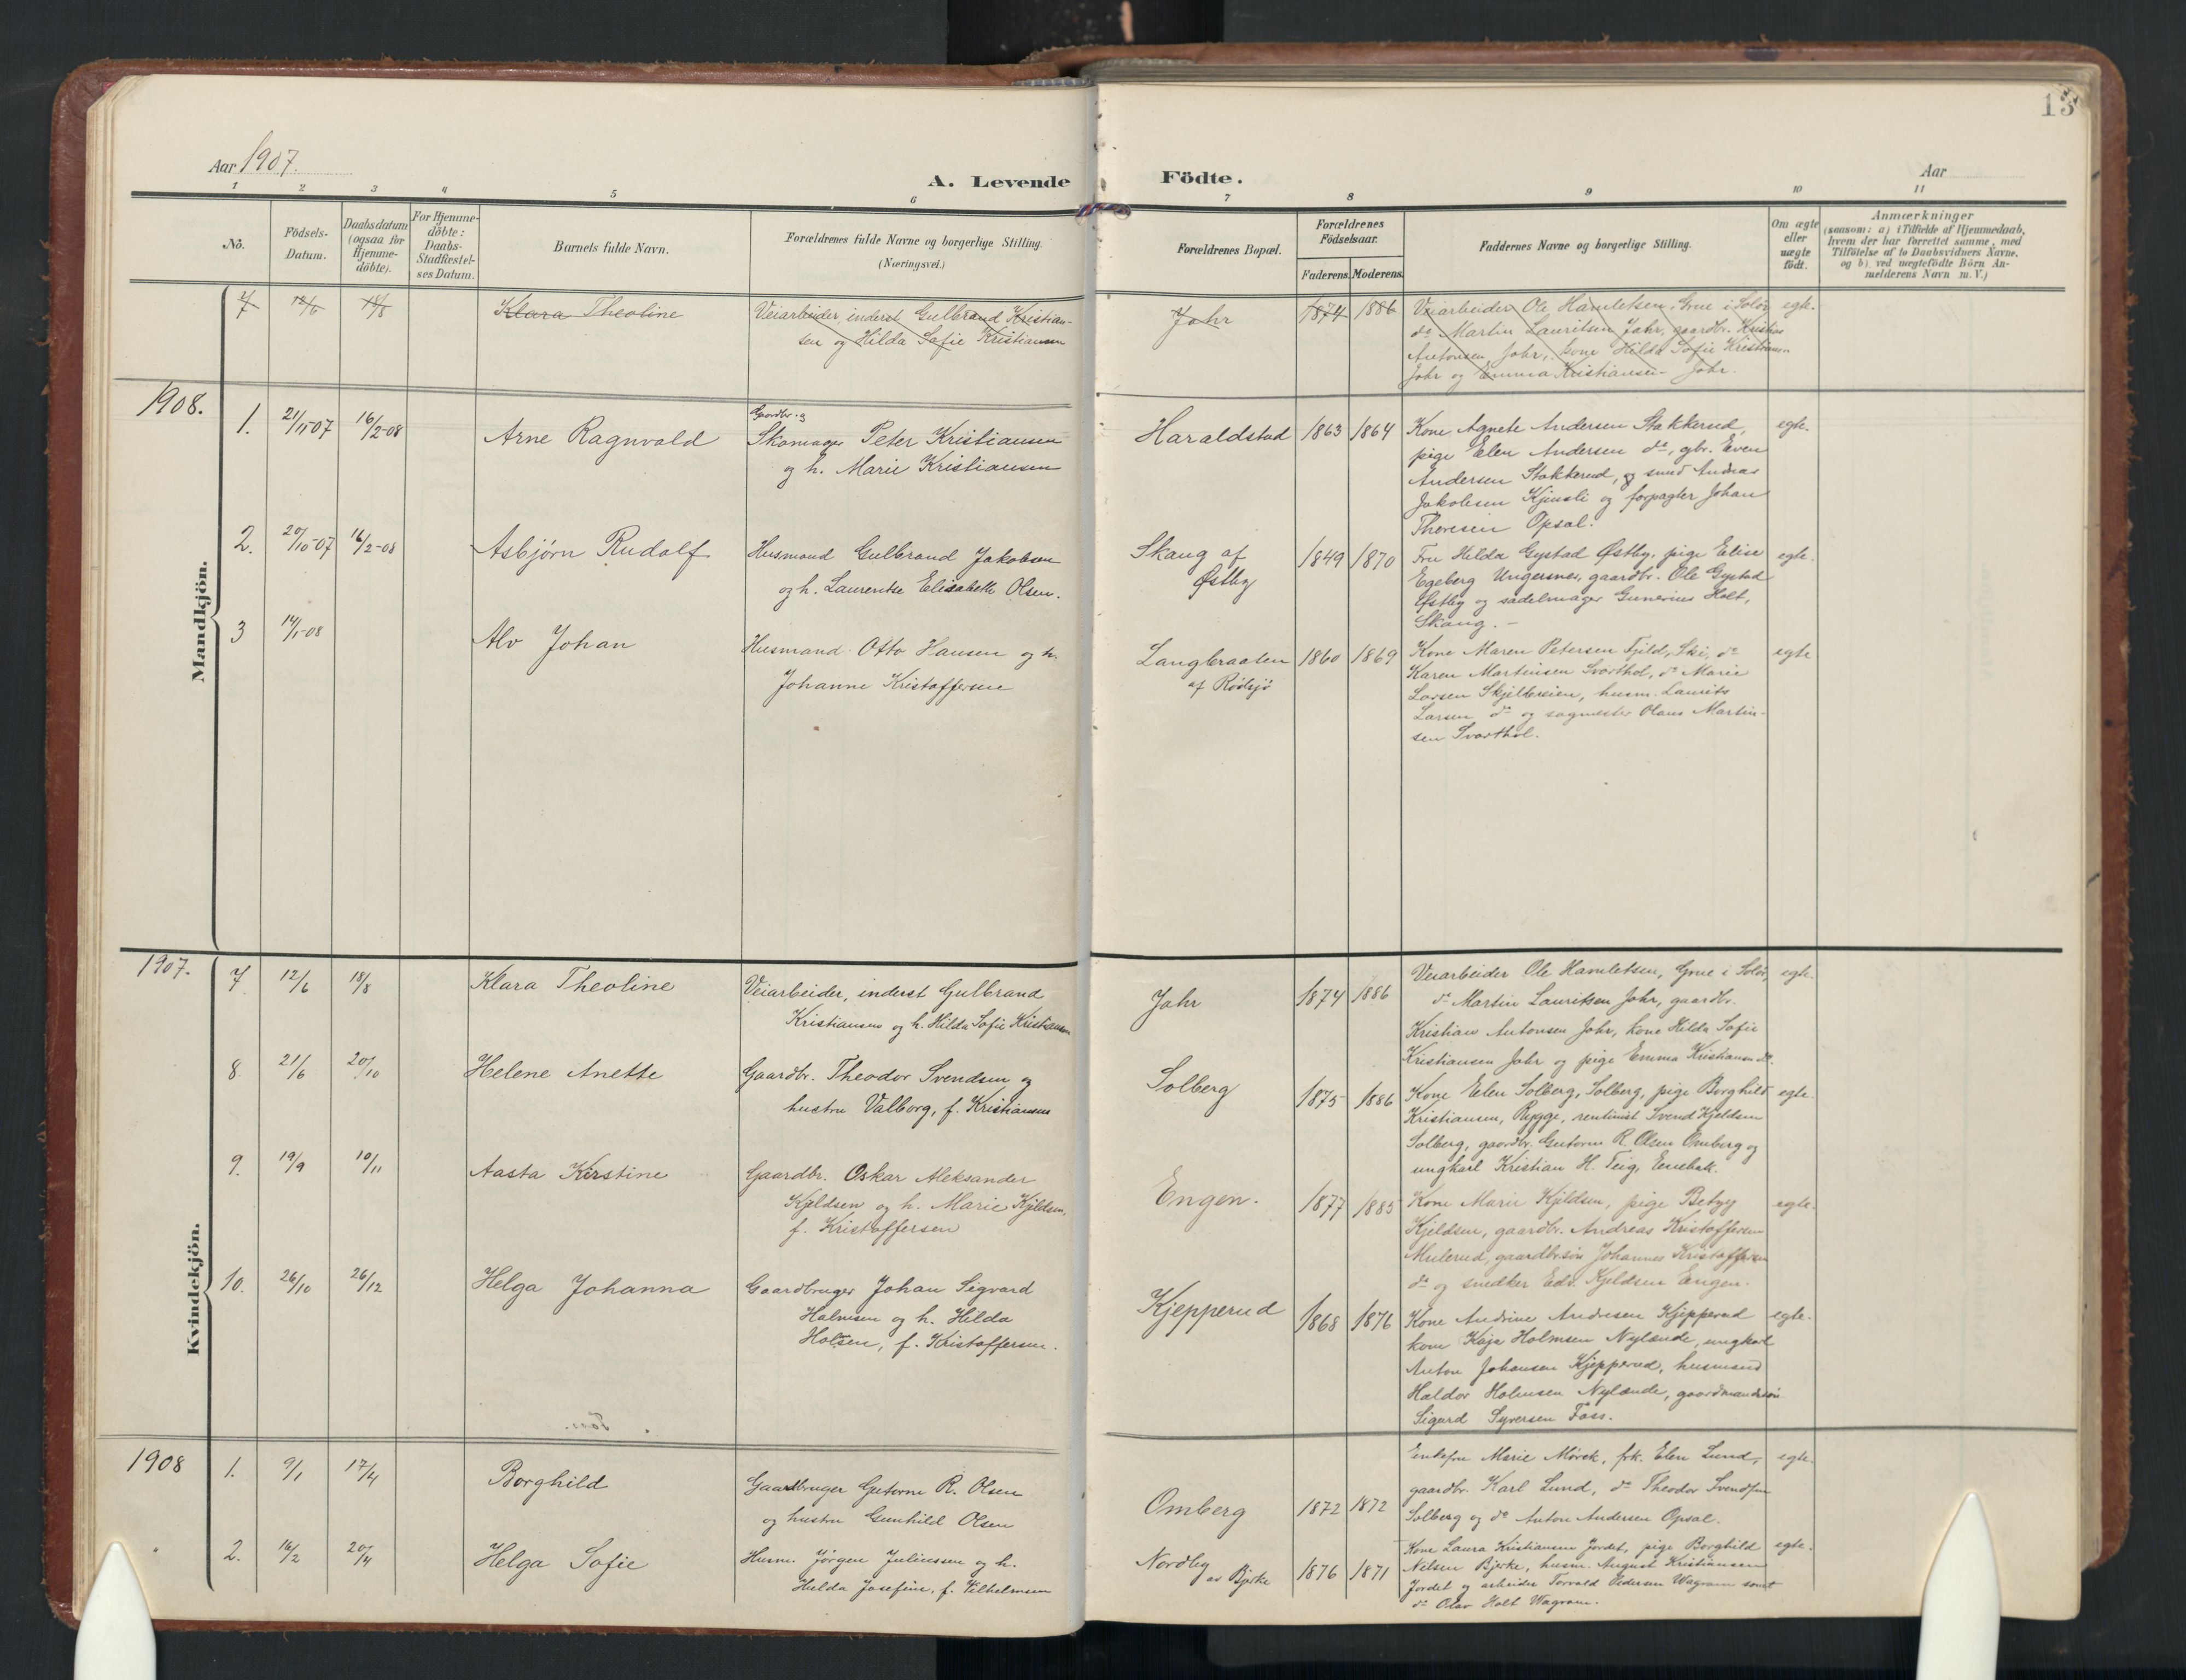 13
Aar 1907.
A. Levende Födte.
Aar
1 2 3 4 5 6 7 8 9 10 11
No.
Födsels-Datum.
Daabsdatum (ogsaa for Hjemme-döbte).
For Hjemme-döbte: Daabs-Stadfæstel-ses Datum.
Barnets fulde Navn.
Forældrenes fulde Navne og borgerlige Stilling. (Næringsvei.)
Forældrenes Bopæl.
Forældrenes Födselsaar.
Faderens. Moderens.
Faddernes Navne og borgerlige Stilling.
Om ægte eller uægte födt.
Anmærkninger
(saasom: a) i Tilfælde af Hjemmedaab,
hvem der har forrettet samme, med
Tilföielse af to Daabsvidners Navne,
og b) ved uægtefödte Börn An-
melderens Navn m.V.)
Mandkjön.
7 12/6 18/8 Klara Theoline
Veiarbeider, inderst Gulbrand Kristian-
sen og Hilda Sofie Kristiansen
Jahr 1874 1886
Veiarbeider Ole Hamletsen, Grue i Solør
do Martin Lauritsen Jahr, gaardbr. Kristian
Antonsen Jahr, kone Hilda Sofie Kristiansen
Jahr og Emma Kristiansen Jahr.
egte.
1908.
1. 21/11-07 16/2-08 Arne Ragnvald
Gaardbr. og
Skomager Peter Kristiansen
og h. Marie Kristiansen
Haraldstad 1863 1864
Kone Agnete Andersen Stakkerud,
pige Elen Andersen do, gbr. Even
Andersen Stakkerud, og smed Andreas
Jakobsen Kjensli og forpagter Johan
Thoresen Opsal.
egte.
2. 20/10-07 16/2-08 Asbjørn Rudolf
Husmand Gulbrand Jakobsen
og h. Laurentse Elisabeth Olsen.
Skaug af
Østby
1849 1870
Fru Hilda Gystad Østby, pige Elise
Egeberg Ungersnes, gaardbr. Ole Gystad
Østby og sadelmager Gunerius Holt,
Skaug. -
egte.
3 14/1-08 Alv Johan
Husmand Otto Hansen og h.
Johanne Kristoffersen
Langbraaten
af Rødsjø
1860 1869
Kone Maren Petersen Fjeld, Ski, do
Karen Martinsen Svarthol, do Marie
Larsen Skjelbreien, husm. Laurits
Larsen do og sagmester Olaus Martin-
sen Svarthol.
egte
Kvindekjön.
1907.
7 12/6 18/8 Klara Theoline
Veiarbeider, inderst Gulbrand
Kristiansen og h. Hilda Sofie Kristiansen
Jahr 1874 1886
Veiarbeider Ole Hamletsen, Grue i Solør,
do Martin Lauritsen Jahr, gaardbr.
Kristian Antonsen Jahr, kone Hilda Sofie
Kristiansen Jahr og pige Emma Kristiansen do.
egte.
8. 21/6 20/10 Helene Anette
Gaardbr. Theodor Svendsen og
hustru Valborg, f. Kristiansen
Solberg 1875 1886
Kone Elen Solberg, Solberg, pige Borghild
Kristiansen, Rygge, rentenist Svend Kjeldsen
Solberg, gaardbr. Gutorm R. Olsen Omberg og
ungkarl Kristian H. Teig, Enebak.
egte.
9. 19/9 10/11 Aasta Kirstine
Gaardbr. Oskar Aleksander
Kjeldsen og h. Marie Kjeldsen,
f. Kristoffersen
Engen. 1877 1885
Kone Marie Kjeldsen, pige Betzy
Kjeldsen, gaardbr. Andreas Kristoffersen
Mulerud, gaardbr.søn Johannes Kristoffersen
do og snedker Edv. Kjeldsen Engen.
egte.
10. 26/10 26/12 Helga Johanna
Gaardbruger Johan Sigvard
Halvsen og h. Hilda
Holsen, f. Kristoffersen.
Kjepperud 1868 1876
Kone Andrine Andresen Kjepperud
kone Kaja Holmsen Nylænde, ungkarl
Anton Johansen Kjepperud, husmand
Haldor Holmsen Nylænde, gaardmandssøn
Sigurd Syversen Foss.
egte.
1908
1. 9/1 17/4 Borghild
Gaardbruger Gutorm R. Olsen
og hustru Gunhild Olsen
Omberg 1872 1872
Enkefru Marie Mørck, frk. Elen Lund,
gaardbr. Karl Lund, do Theodor Svendsen
Solberg og do Anton Andersen Opsal.
egte.
2. 16/2 20/4 Helga Sofie
Husm. Jørgen Juliussen og h.
Hulda Josefine, f. Vilhelmsen
Nordby
av Bjerke
1876 1871
Kone Laura Kristiansen Jordet, pige Borghild
Nilsen Bjerke, husm. August Kristiansen
Jordet og arbeider Torvald Pedersen Wagram samt
do Olav Holt Wagram.
egte.